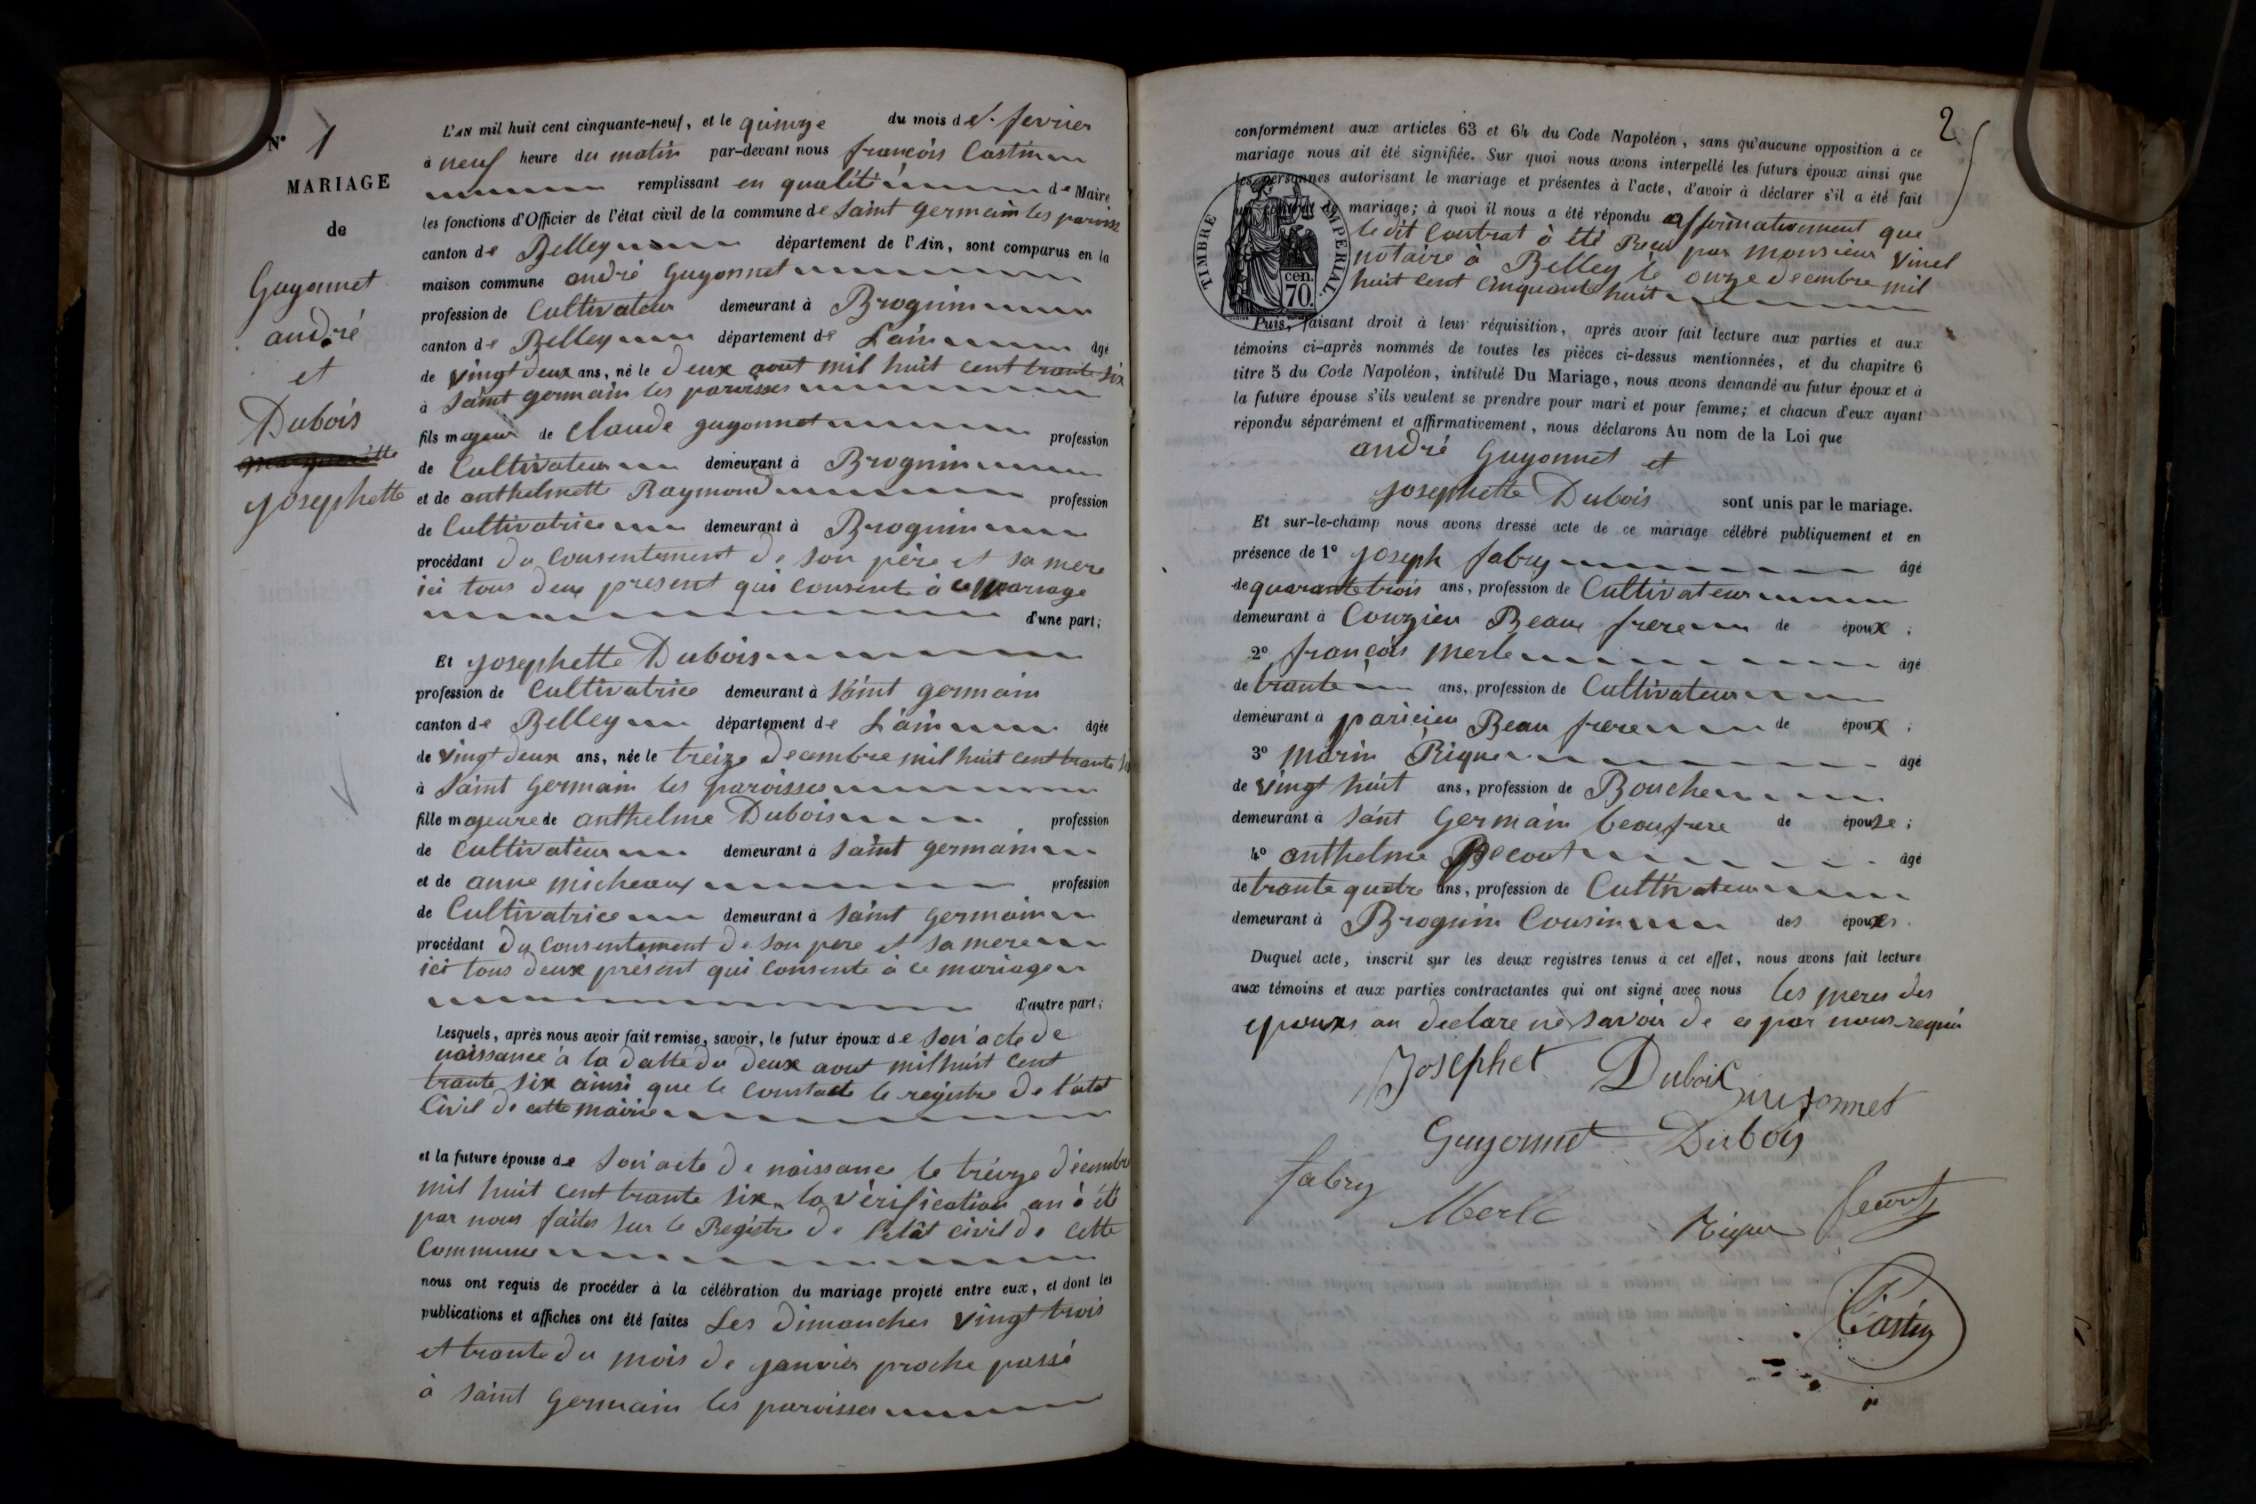 N° 1
MARIAGE
de
Guyonnet
andré
et
Dubois
josephette
L'AN mil huit cent cinquante-neuf, et le quinze du mois de fevrier
à neuf heure du matin par-devant nous françois Castin
remplissant en qualité de Maire
les fonctions d'Officier de l'état civil de la commune de Saint germain les paroisse
canton de Belley département de l'Ain, sont comparus en la
maison commune andré Guyonnet
profession de Cultivateur demeurant à Brognin
canton de Belley département de L'ain âgé
de vingt deux ans, né le deux aout mil huit cent trante six
à Saint germain les paroisses
fils majeur de Claude guyonnet profession
de Cultivateur demeurant à Brognin
et de anthelmette Raymond profession
de Cultivatrice demeurant à Brognin
procédant du consentement de son père et sa mere
ici tous deux present qui consent à ce mariage
d'une part;
Et josephette Dubois
profession de Cultivatrice demeurant à Saint germain
canton de Belley département de L'ain âgée
de vingt deux ans, née le treize decembre mil huit cent trante
à Saint Germain les paroisses
fille majeure de anthelme Dubois profession
de Cultivateur demeurant à Saint germain
et de anne micheaux profession
de Cultivatrice demeurant à Saint Germain
procédant du consentement de son pere et sa mere
ici tous deux présent qui consente à ce mariage
d'autre part;
Lesquels, après nous avoir fait remise, savoir, le futur époux de son acte de
naissance à la datte du deux aout mil huit cent
trante six ainsi que le constate le registre de l'etat
Civil de cette mairie
et la future épouse de son acte de naissance le treize décembre
mil huit cent trante six la vérification an à été
par nous faites sur le Registre de l'etât civil de cette
Commune
nous ont requis de procéder à la célébration du mariage projeté entre eux, et dont les
publications et affiches ont été faites Les dimanches vingt trois
et trante du mois de janvier proche passé
à Saint Germain les paroisses
2
conformément aux articles 63 et 64 du Code Napoléon, sans qu'aucune opposition à ce
mariage nous ait été signifiée. Sur quoi nous avons interpellé les futurs époux ainsi que
les personnes autorisant le mariage et présentes à l'acte, d'avoir à déclarer s'il a été fait
un contrat de mariage; à quoi il nous a été répondu affirmativement que
le dit Contrat à été Reçu par monsieur Vinel
notaire à Belley le onze decembre mil
huit cent cinquante huit
TIMBRE IMPERIAL
cen.
70.
Puis, faisant droit à leur réquisition, après avoir fait lecture aux parties et aux
témoins ci-après nommés de toutes les pièces ci-dessus mentionnées, et du chapitre 6
titre 5 du Code Napoléon, intitulé Du Mariage, nous avons demandé au futur époux et à
la future épouse s'ils veulent se prendre pour mari et pour femme; et chacun d'eux ayant
répondu séparément et affirmativement, nous déclarons Au nom de la Loi que
andré Guyonnet et
josephette Dubois sont unis par le mariage.
Et sur-le-champ nous avons dressé acte de ce mariage célébré publiquement et en
présence de 1° joseph fabry âgé
de quarante trois ans, profession de Cultivateur
demeurant à Couzieu Beau frere de époux;
2° françois merle âgé
de trante ans, profession de Cultivateur
demeurant à parisieu Beau frere de époux;
3° marin Rique âgé
de vingt huit ans, profession de Bouche
demeurant à Saint Germain beaufrere de épouse;
4° anthelme âgé
de trante quatre ans, profession de Cultivateur
demeurant à Brognin Cousin des époux.
Duquel acte, inscrit sur les deux registres tenus à cet effet, nous avons fait lecture
aux témoins et aux parties contractantes qui ont signé avec nous les meres des
epouxs an declare ne savoir de ce par nous requis
Josephet Dubois
Guyonnet
Guyonnet Duboy
fabry
Merle
Rique
Castin